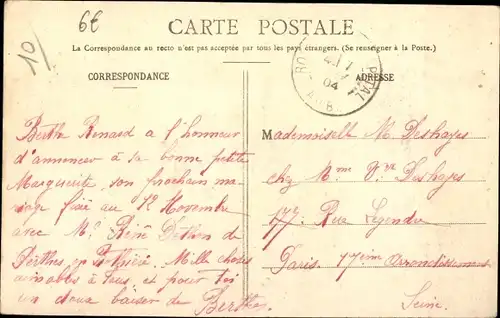 6€
10
CARTE POSTALE
La Correspondance au recto n'est pas acceptée par tous les pays étrangers. (Se renseigner à la Poste.)
CORRESPONDANCE
ADRESSE
04
Berthe Renard a l'honneur
d'annoncer à sa bonne petite
Marguerite, son prochain ma-
riage fixé au 12 Novembre
avec Mr René de
Perthes, Mille choses
aimables à tous, et pour toi
un doux baiser de Berthe.
Mademoiselle M. Deshayes
chez Mme Vve Deshayes
177 Rue Legendre
Paris. 17ième Arrondissement
Seine.